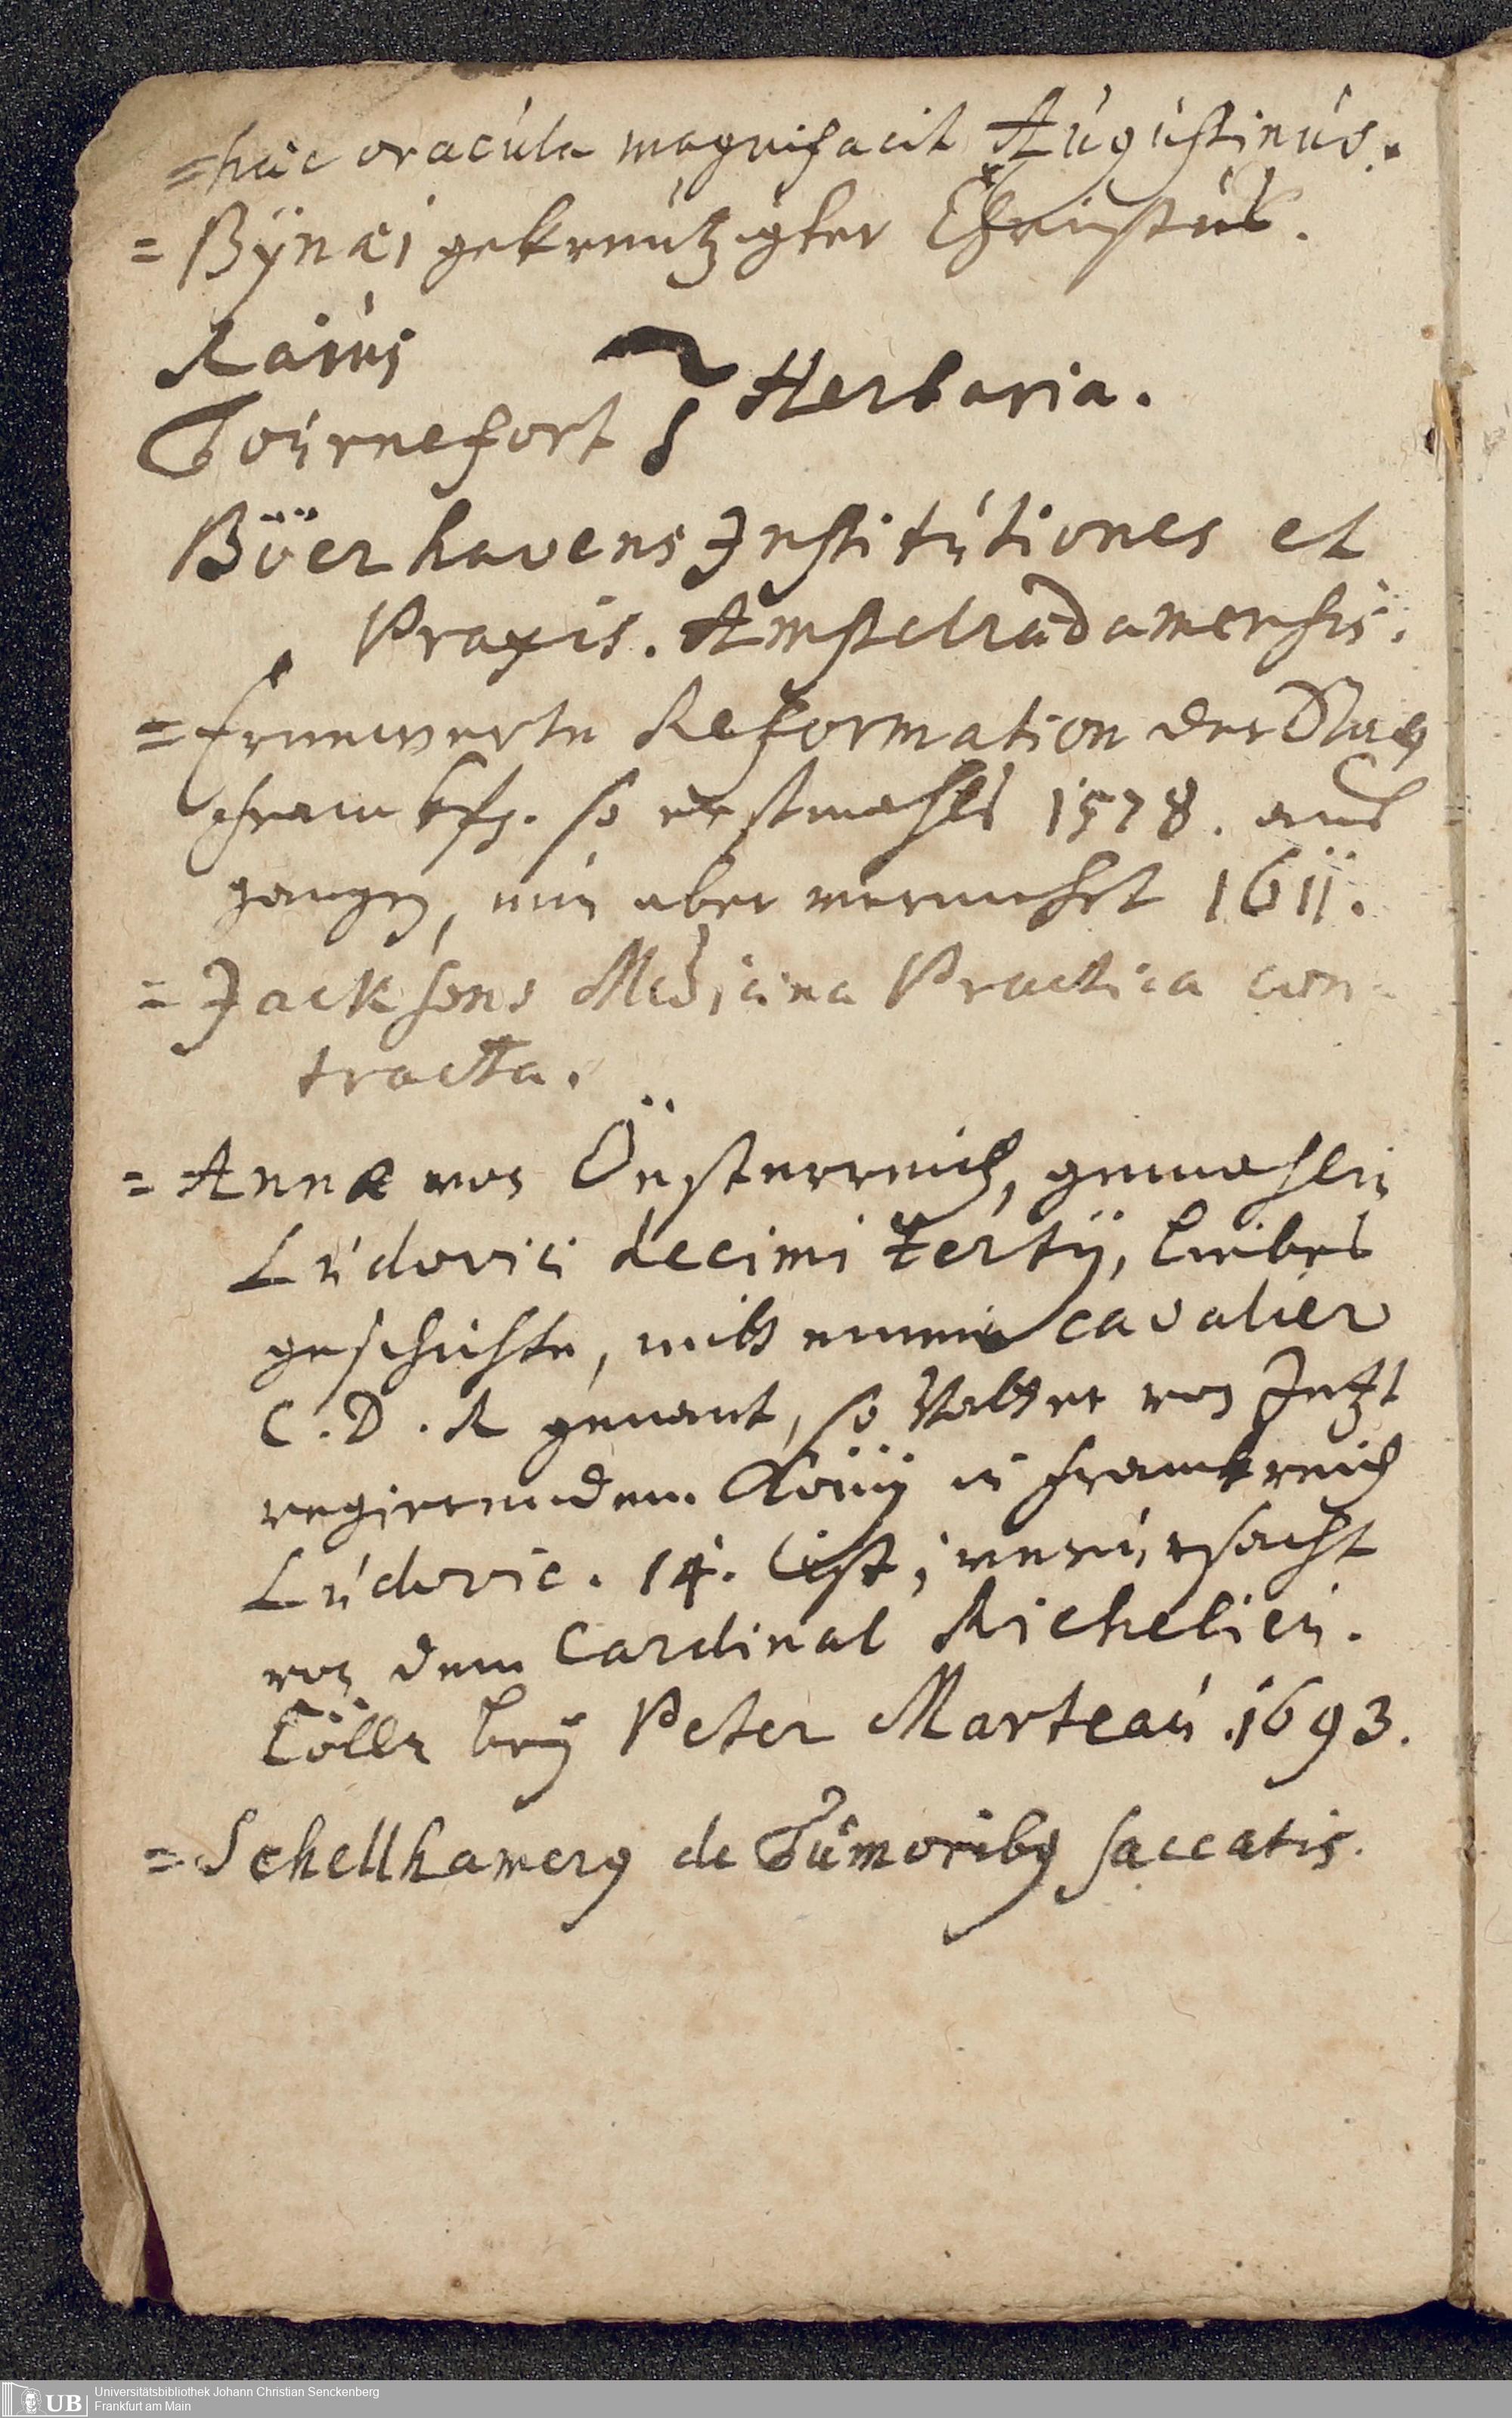 = hæc oracula magnifacit Augustinus.
= Bÿnæi gekreutzigter Christus.
Raius
Tournefort } Herbaria.
Böerhavens Institutiones et
Praxis. Amstelradamensis.
= Ernewerte Reformation der Statt
Franckfg. so erstmahls 1578. aus
gangen, nun aber vermehrt 1611.
= Jacksons Medicina Practica con-
tracta.
= Anna von Öesterreich, gemahlin
Ludovici decimi tertÿ, liebes
geschichte, mitt einem cavalier
C. D. R genant, so Vatter von Jetzt
regierendem König in Franckreich
Ludovic. 14. ist, verursacht
von dem Cardinal Richelieu.
Cölln beÿ Peter Marteau. 1693.
= Schellhamerg de Tumoribg saccatis.
UB
Universitätsbibliothek Johann Christian Senckenberg
Frankfurt am Main